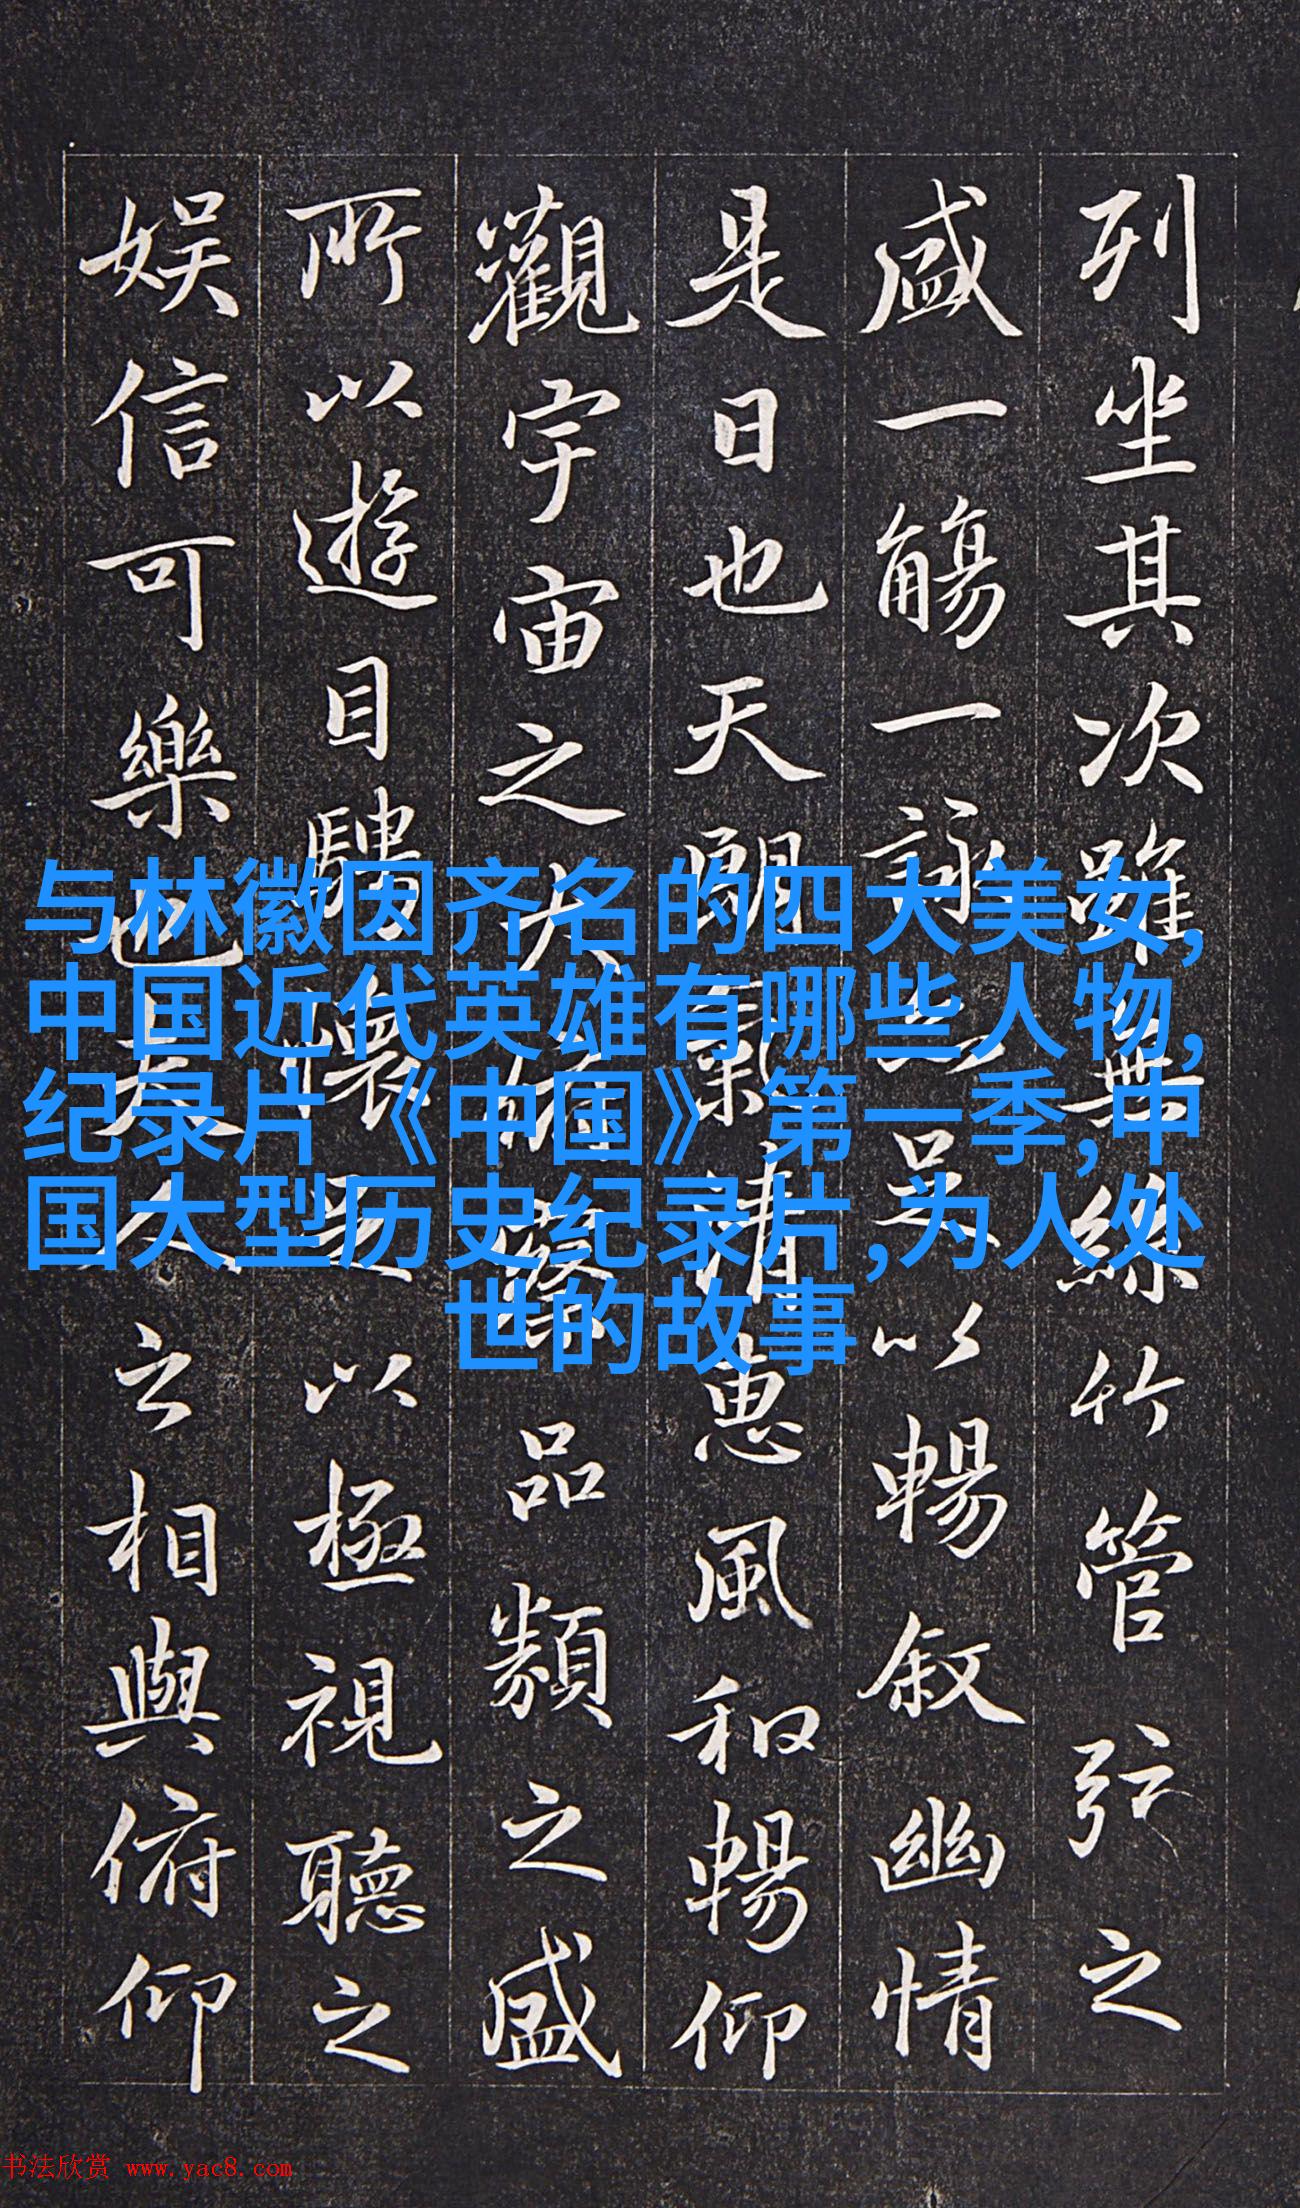 列坐其次雖無絲竹管弦之
盛一觴一詠亦足以暢敘幽情
是日也天朗氣清惠風和暢仰
觀宇宙之大俯察品類之盛
所以遊目騁懷足以極視聽之
娛信可樂也夫人之相與俯仰
与林徽因齐名的四大美女,
中国近代英雄有哪些人物,
纪录片《中国》第一季,中
国大型历史纪录片,为人处
世的故事
书法欣赏 www.yac8.com